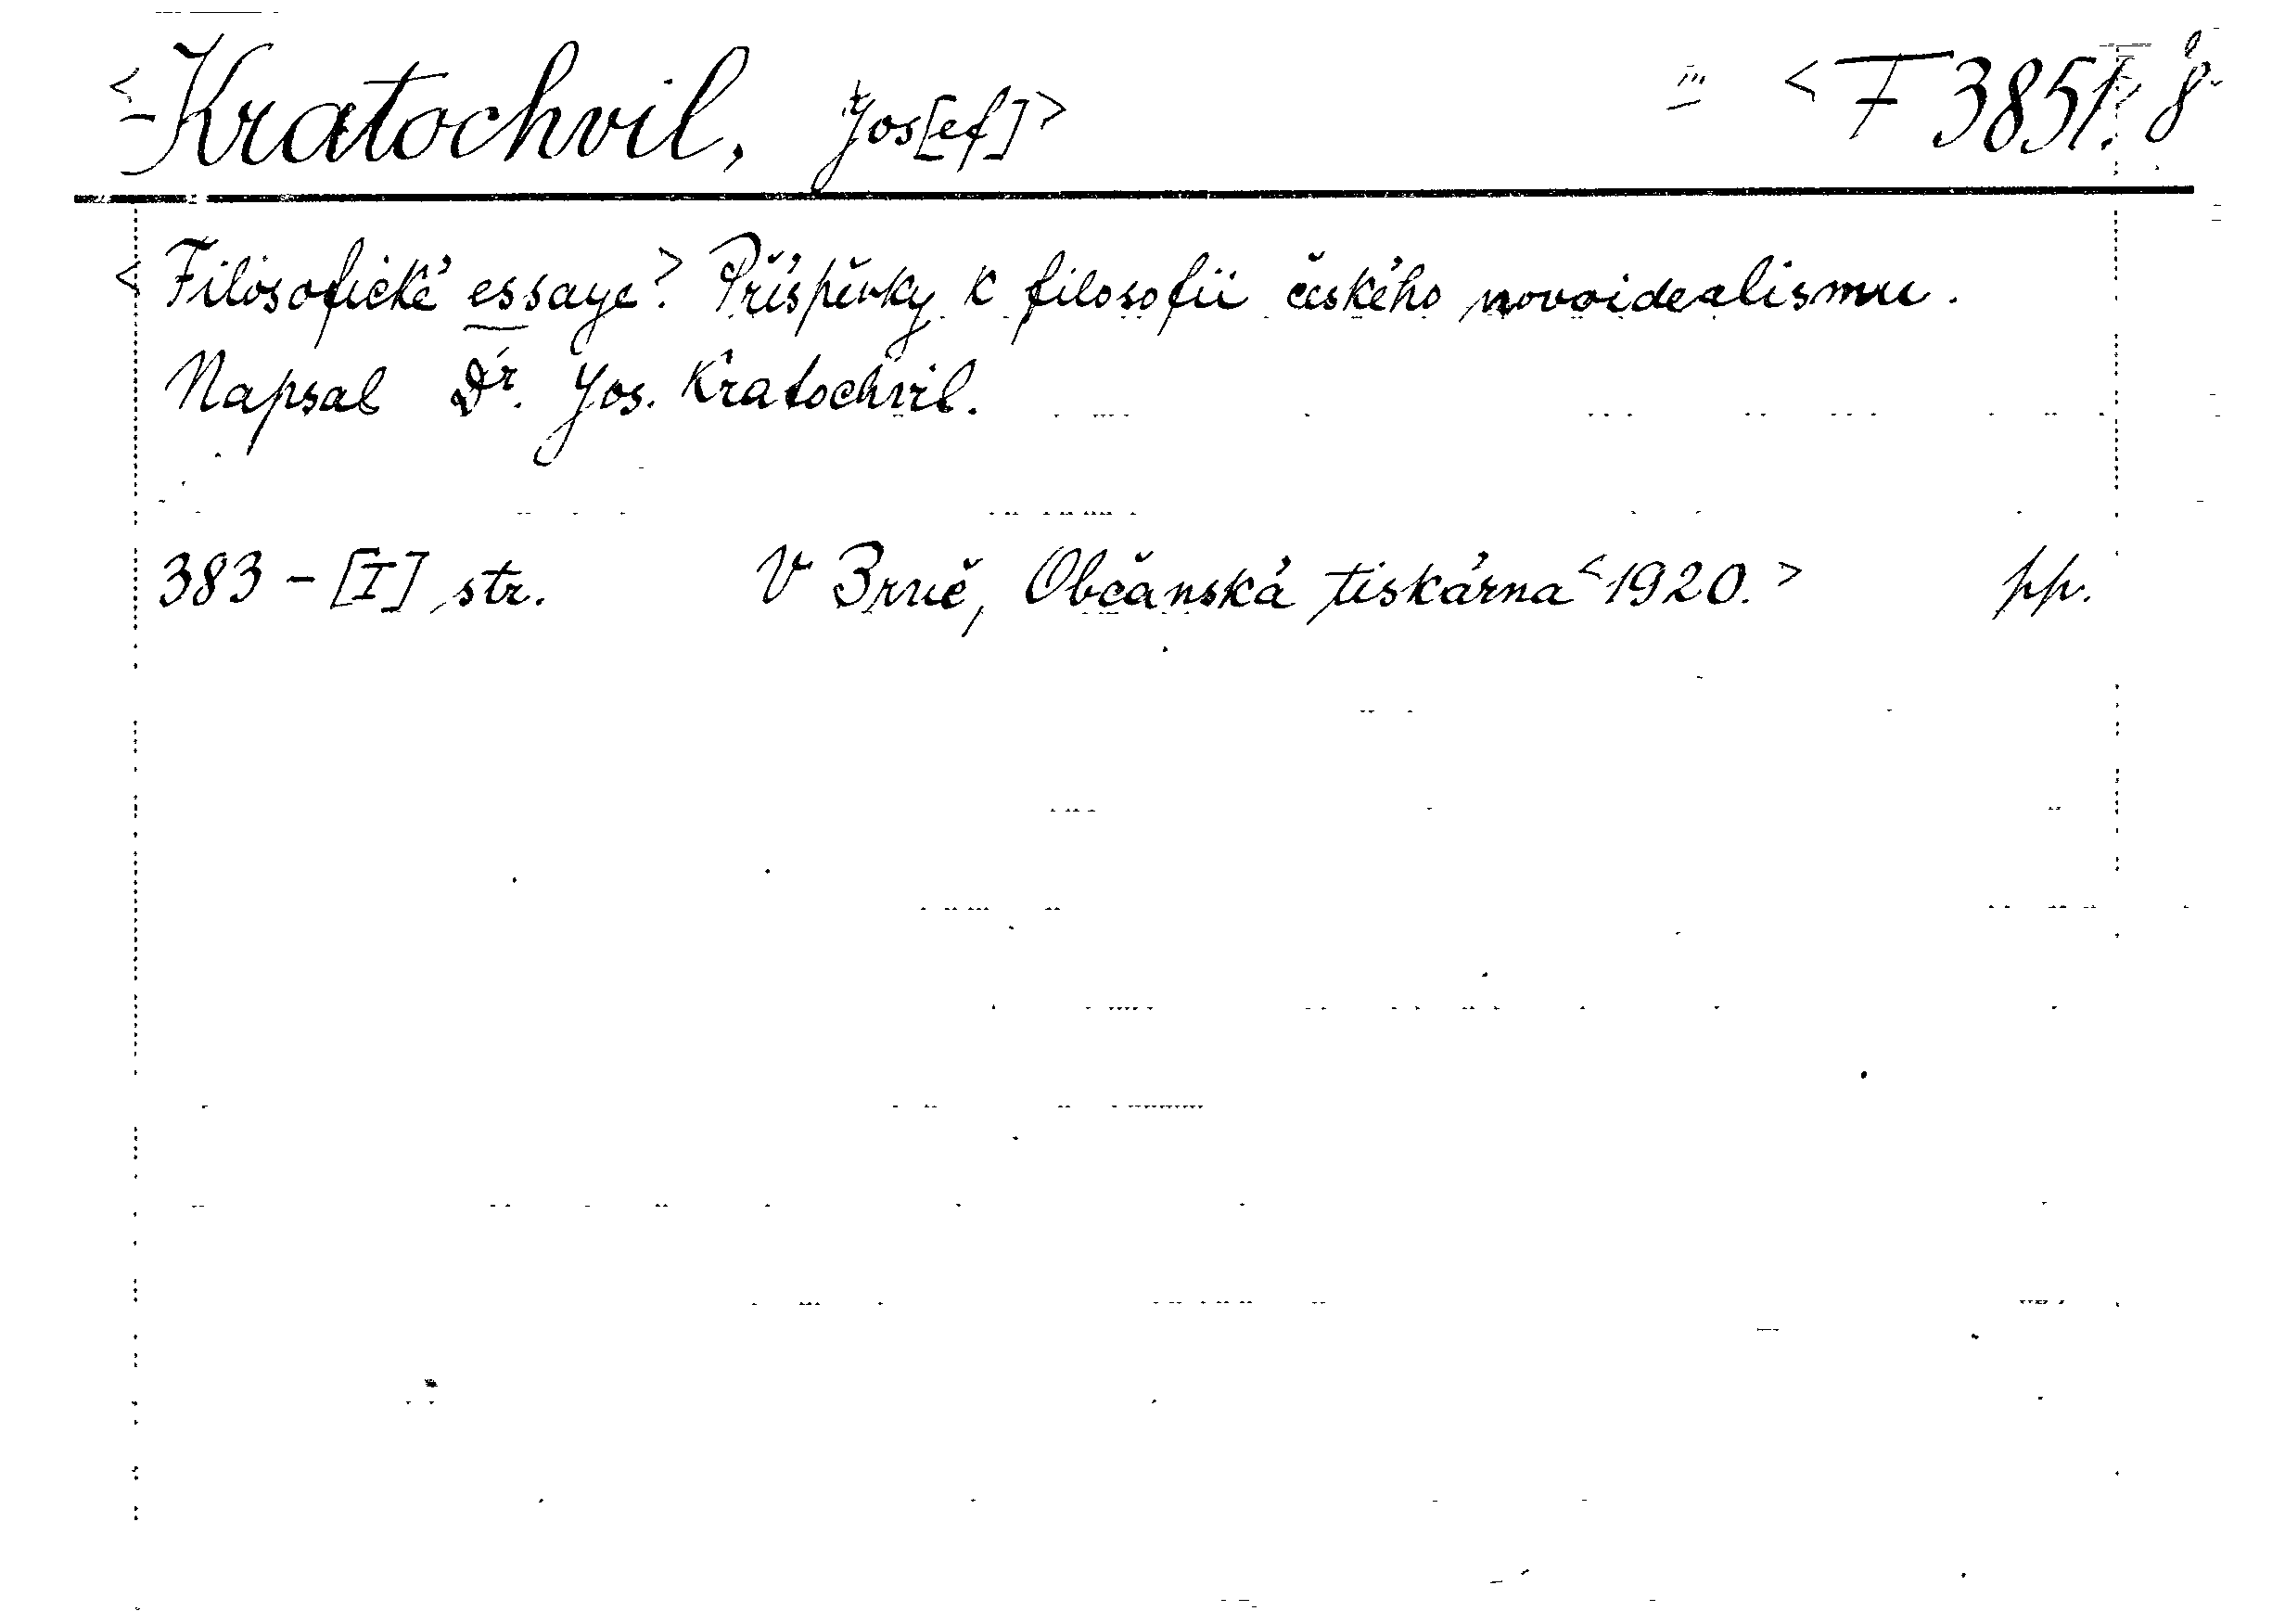 <Kratochvil, Jos[ef]> <F 3851. 8
<Filosofické essaye> Příspěvky k filosofii českého novoidealismu.
Napsal Dr. Jos. Kratochvil.
383 - [I] str. V Brně, Občanská tiskárna <1920.> pp.